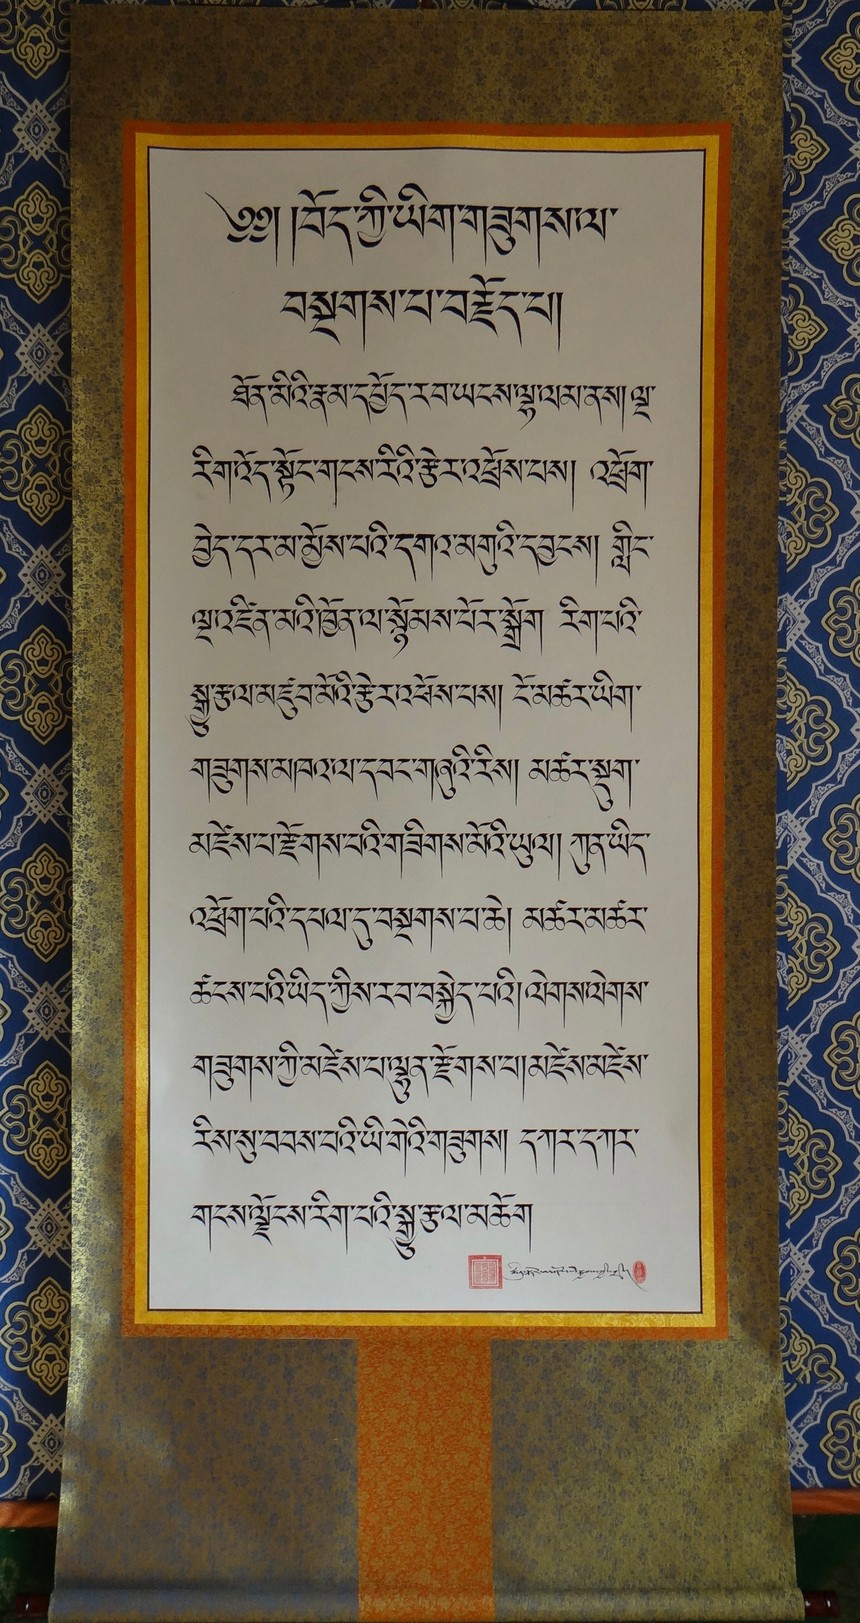 ༄༅། །བོད་ཀྱི་ཡིག་གཟུགས་ལ་
བསྔགས་པ་བརྗོད་པ།།
ཐོན་མིའི་རྣམ་དཔྱོད་རབ་ཡངས་ལྷ་ལམ་ནས། ལྔ་
རིག་འོད་སྟོང་གངས་རིའི་རྩེར་འཕྲོས་པས། འཕྲོག་
བྱེད་དར་མ་མྱོས་པའི་དགའ་མགུའི་དབྱངས། གླིང་
ལྔ་འཛིན་མའི་ཁྱོན་ལ་སྙོམས་པོར་སྒྲོག རིག་པའི་
སྒྱུ་རྩལ་མཛུབ་མོའི་རྩེར་འཕོས་པས། ངོ་མཚར་ཡིག་
གཟུགས་མཁའ་ལ་དབང་གཞུའི་རིས། མཚར་སྡུག་
མཛེས་པ་རྫོགས་པའི་གཟིགས་མོའི་ཡུལ། ཀུན་ཡིད་
འཕྲོག་པའི་དཔལ་དུ་བསྔགས་པ་ཆེ། མཚར་མཚར་
ཚངས་པའི་ཡིད་ཀྱིས་རབ་བསྐྱེད་པའི། ལེགས་ལེགས་
གཟུགས་ཀྱི་མཛེས་པ་ལྷུན་རྫོགས་པ། མཛེས་མཛེས་
རིས་སུ་བབས་པའི་ཡི་གེའི་གཟུགས། དཀར་དཀར་
གངས་ལྗོངས་རིག་པའི་སྒྱུ་རྩལ་མཆོག